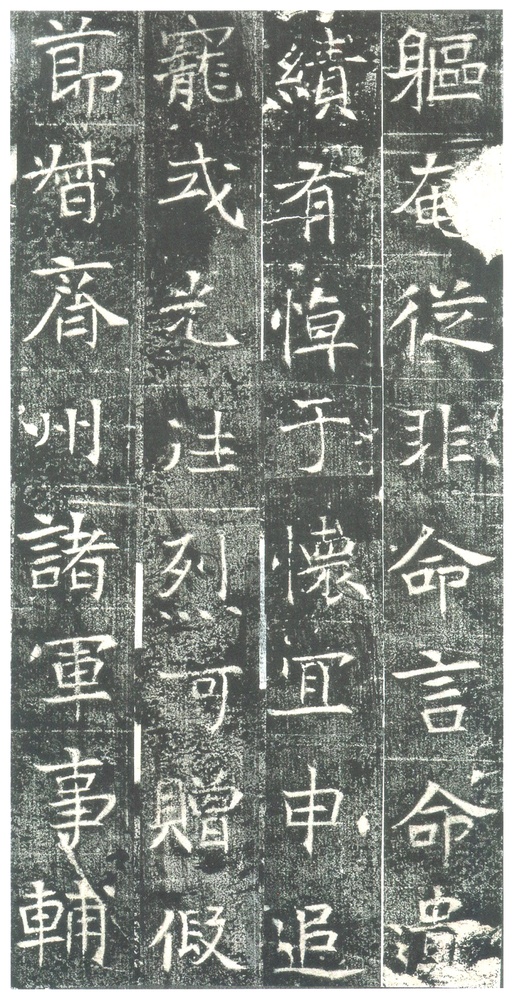 軀奄從非命言命
績有悼于懷宜申追
寵式光往烈可贈假
節督齊州諸軍事輔